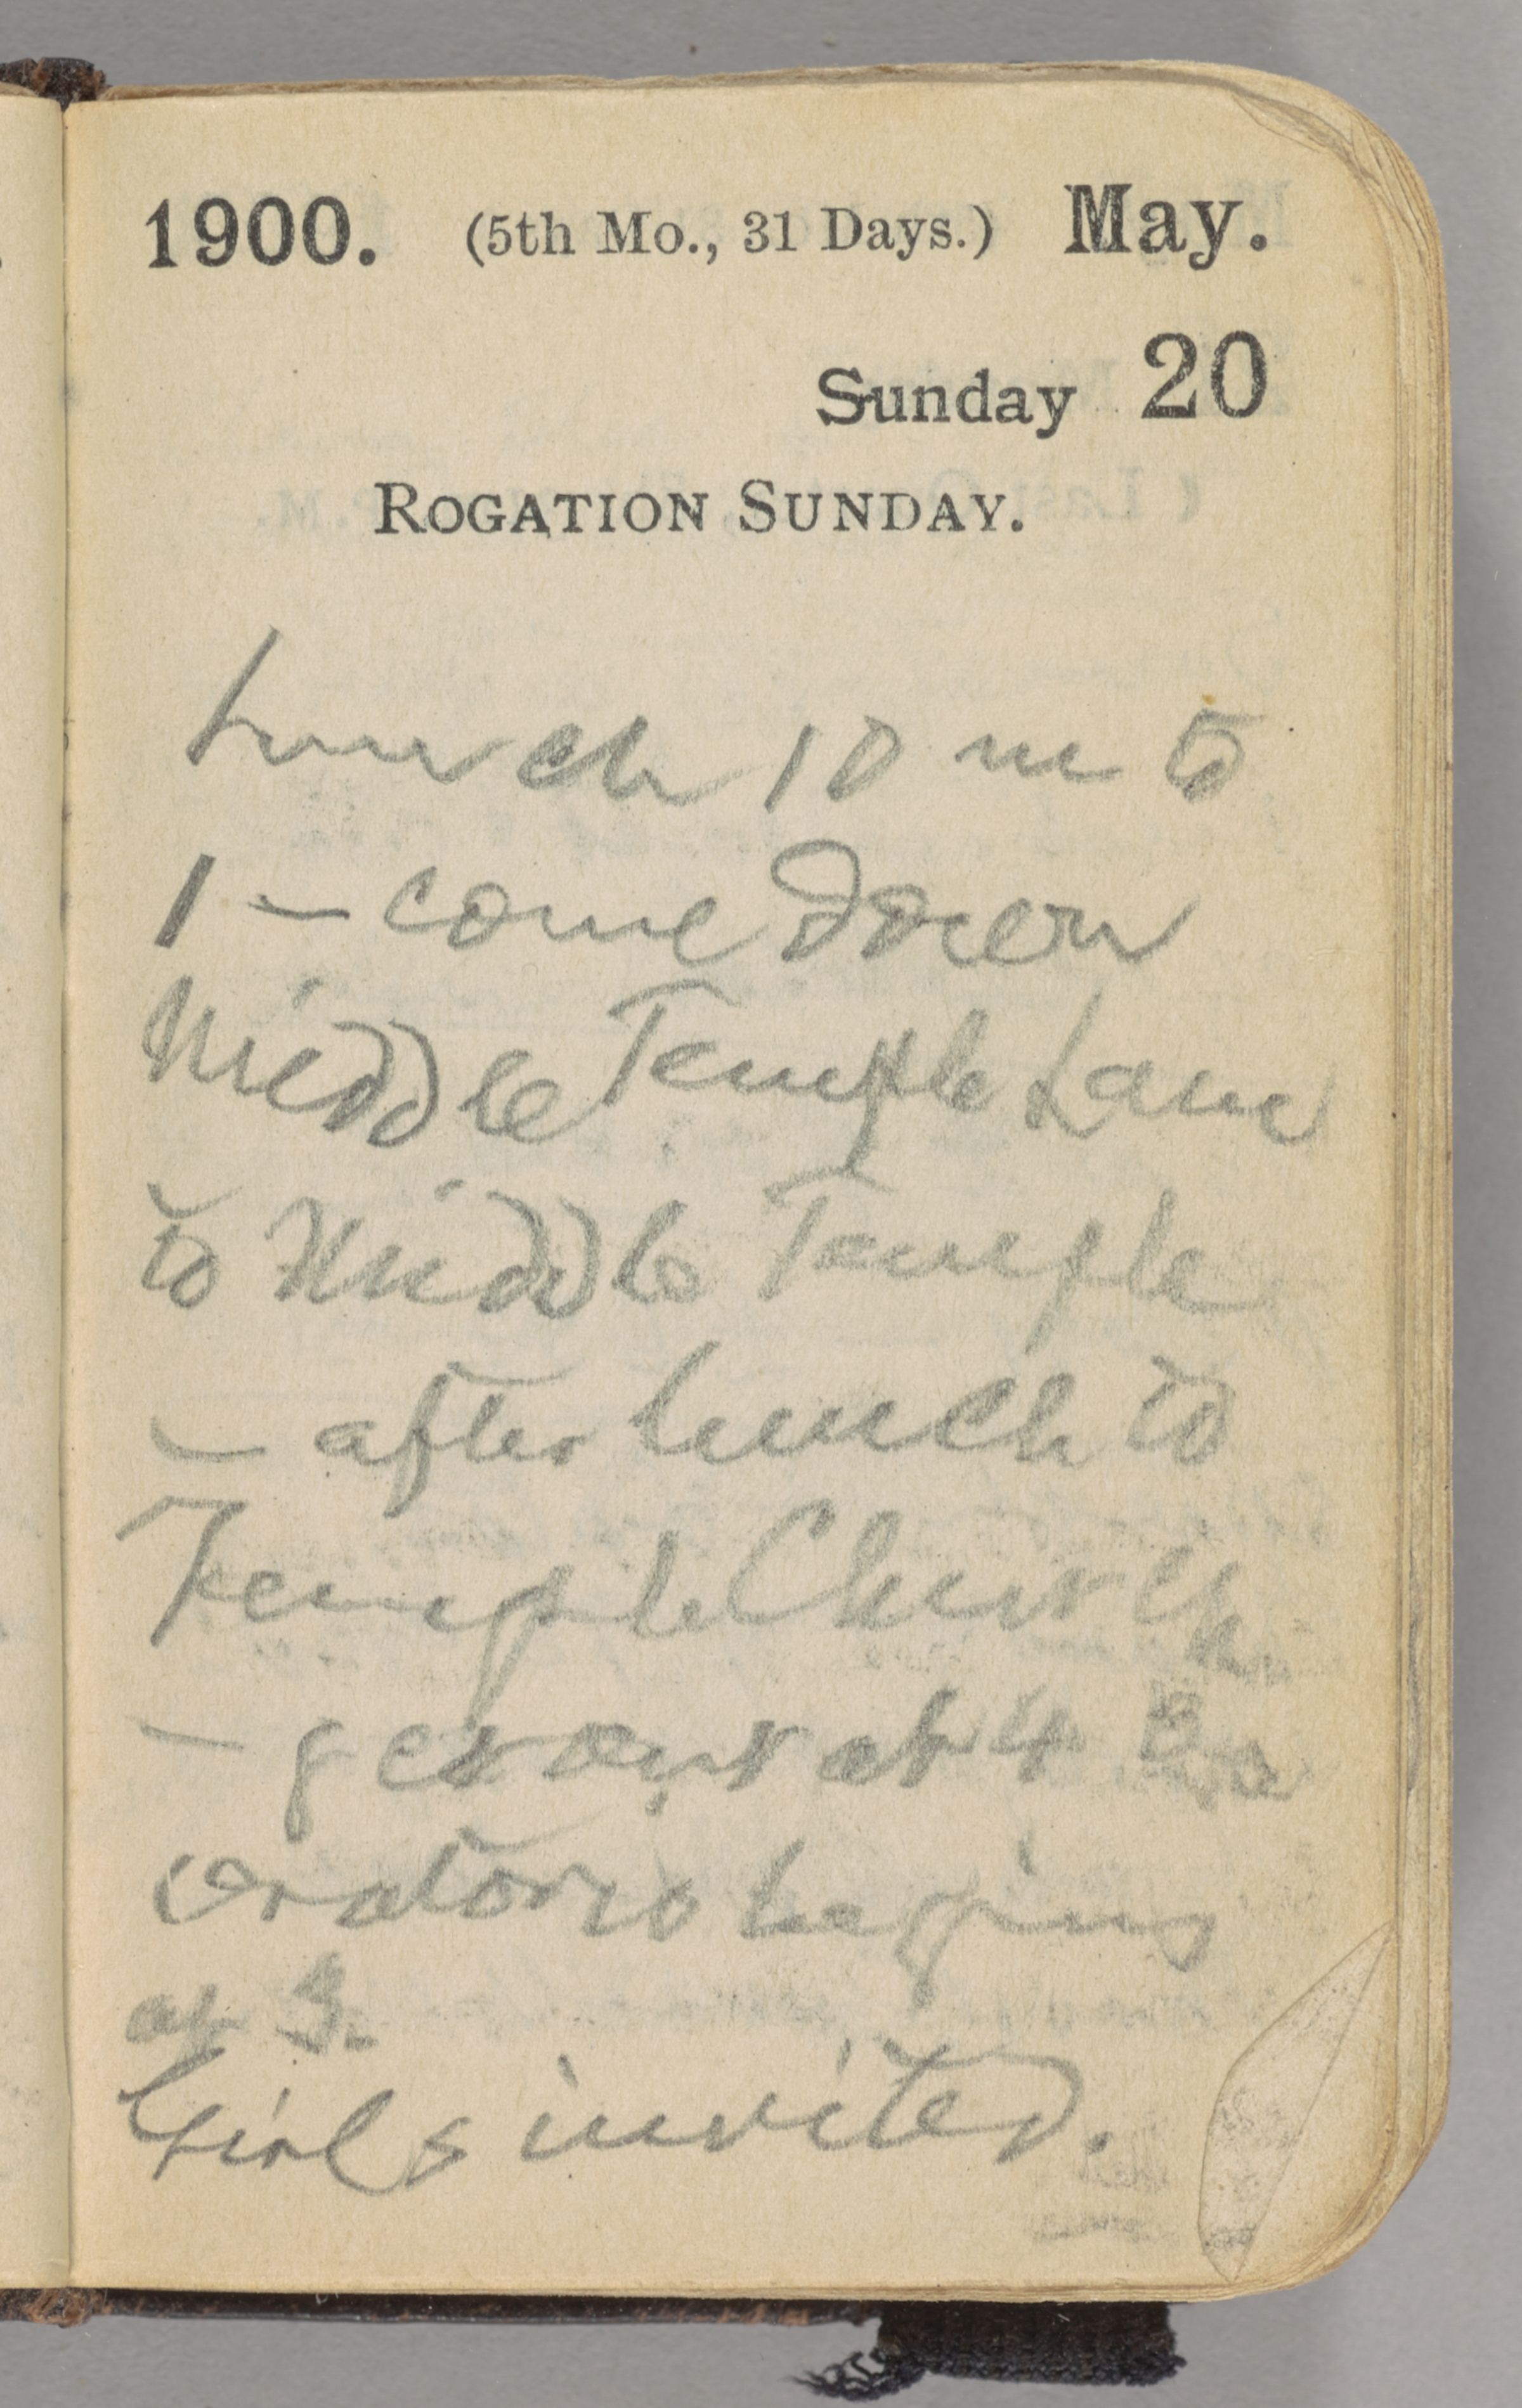 1900. (5th Mo., 31 Days.) May.
Sunday 20
ROGATION SUNDAY.
Lunch 10 m to
1 — come down
Middle Temple Lane
to Middle Temple
— after lunch to
Temple Church
— get out at 4 30
oratorio begins
at 3.
Girls invited.